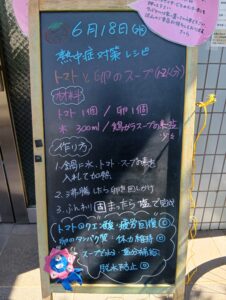 6月18日(水)
熱中症対策レシピ
トマトと卵のスープ(1人分)
材料
トマト1個 / 卵1個
水 300ml / 鶏がらスープの素 少々
作り方
1.鍋に水、トマト、スープの素を
入れて加熱
2.沸騰したら卵を回しかけ
3.ふんわり固まったら塩で完成
トマトのクエン酸・疲労回復
卵のタンパク質・体力維持
スープ 塩分補給
脱水防止